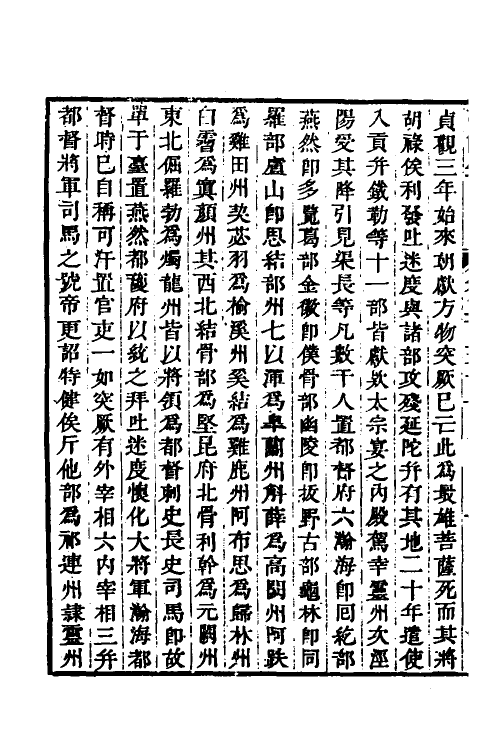 貞觀三年始來朝獻方物突厥已亡此為最雄菩薩死而其將
胡祿俟利發吐迷度與諸部攻殘延陀并有其地二十年遣使
入貢并鐵勒等十一部皆獻欵太宗宴之內殿駕幸靈州次涇
陽受其降引見渠長等凡數千人置都督府六瀚海卽囘紇部
燕然卽多覽葛部金徽卽僕骨部幽陵卽拔野古部龜林卽同
羅部盧山卽思結部州七以渾為臯蘭州斛薛為高闕州阿跌
為雞田州契苾羽為榆溪州奚結為雞鹿州阿布思為歸林州
白霫為寘顏州其西北結骨部為堅昆府北骨利幹為元闕州
東北俱羅勃為燭龍州皆以將領為都督刺史長史司馬卽故
單于臺置燕然都護府以統之拜吐迷度懷化大將軍瀚海都
督時已自稱可汗置官吏一如突厥有外宰相六內宰相三并
都督將軍司馬之號帝更詔特健俟斤他部為祁連州隷靈州